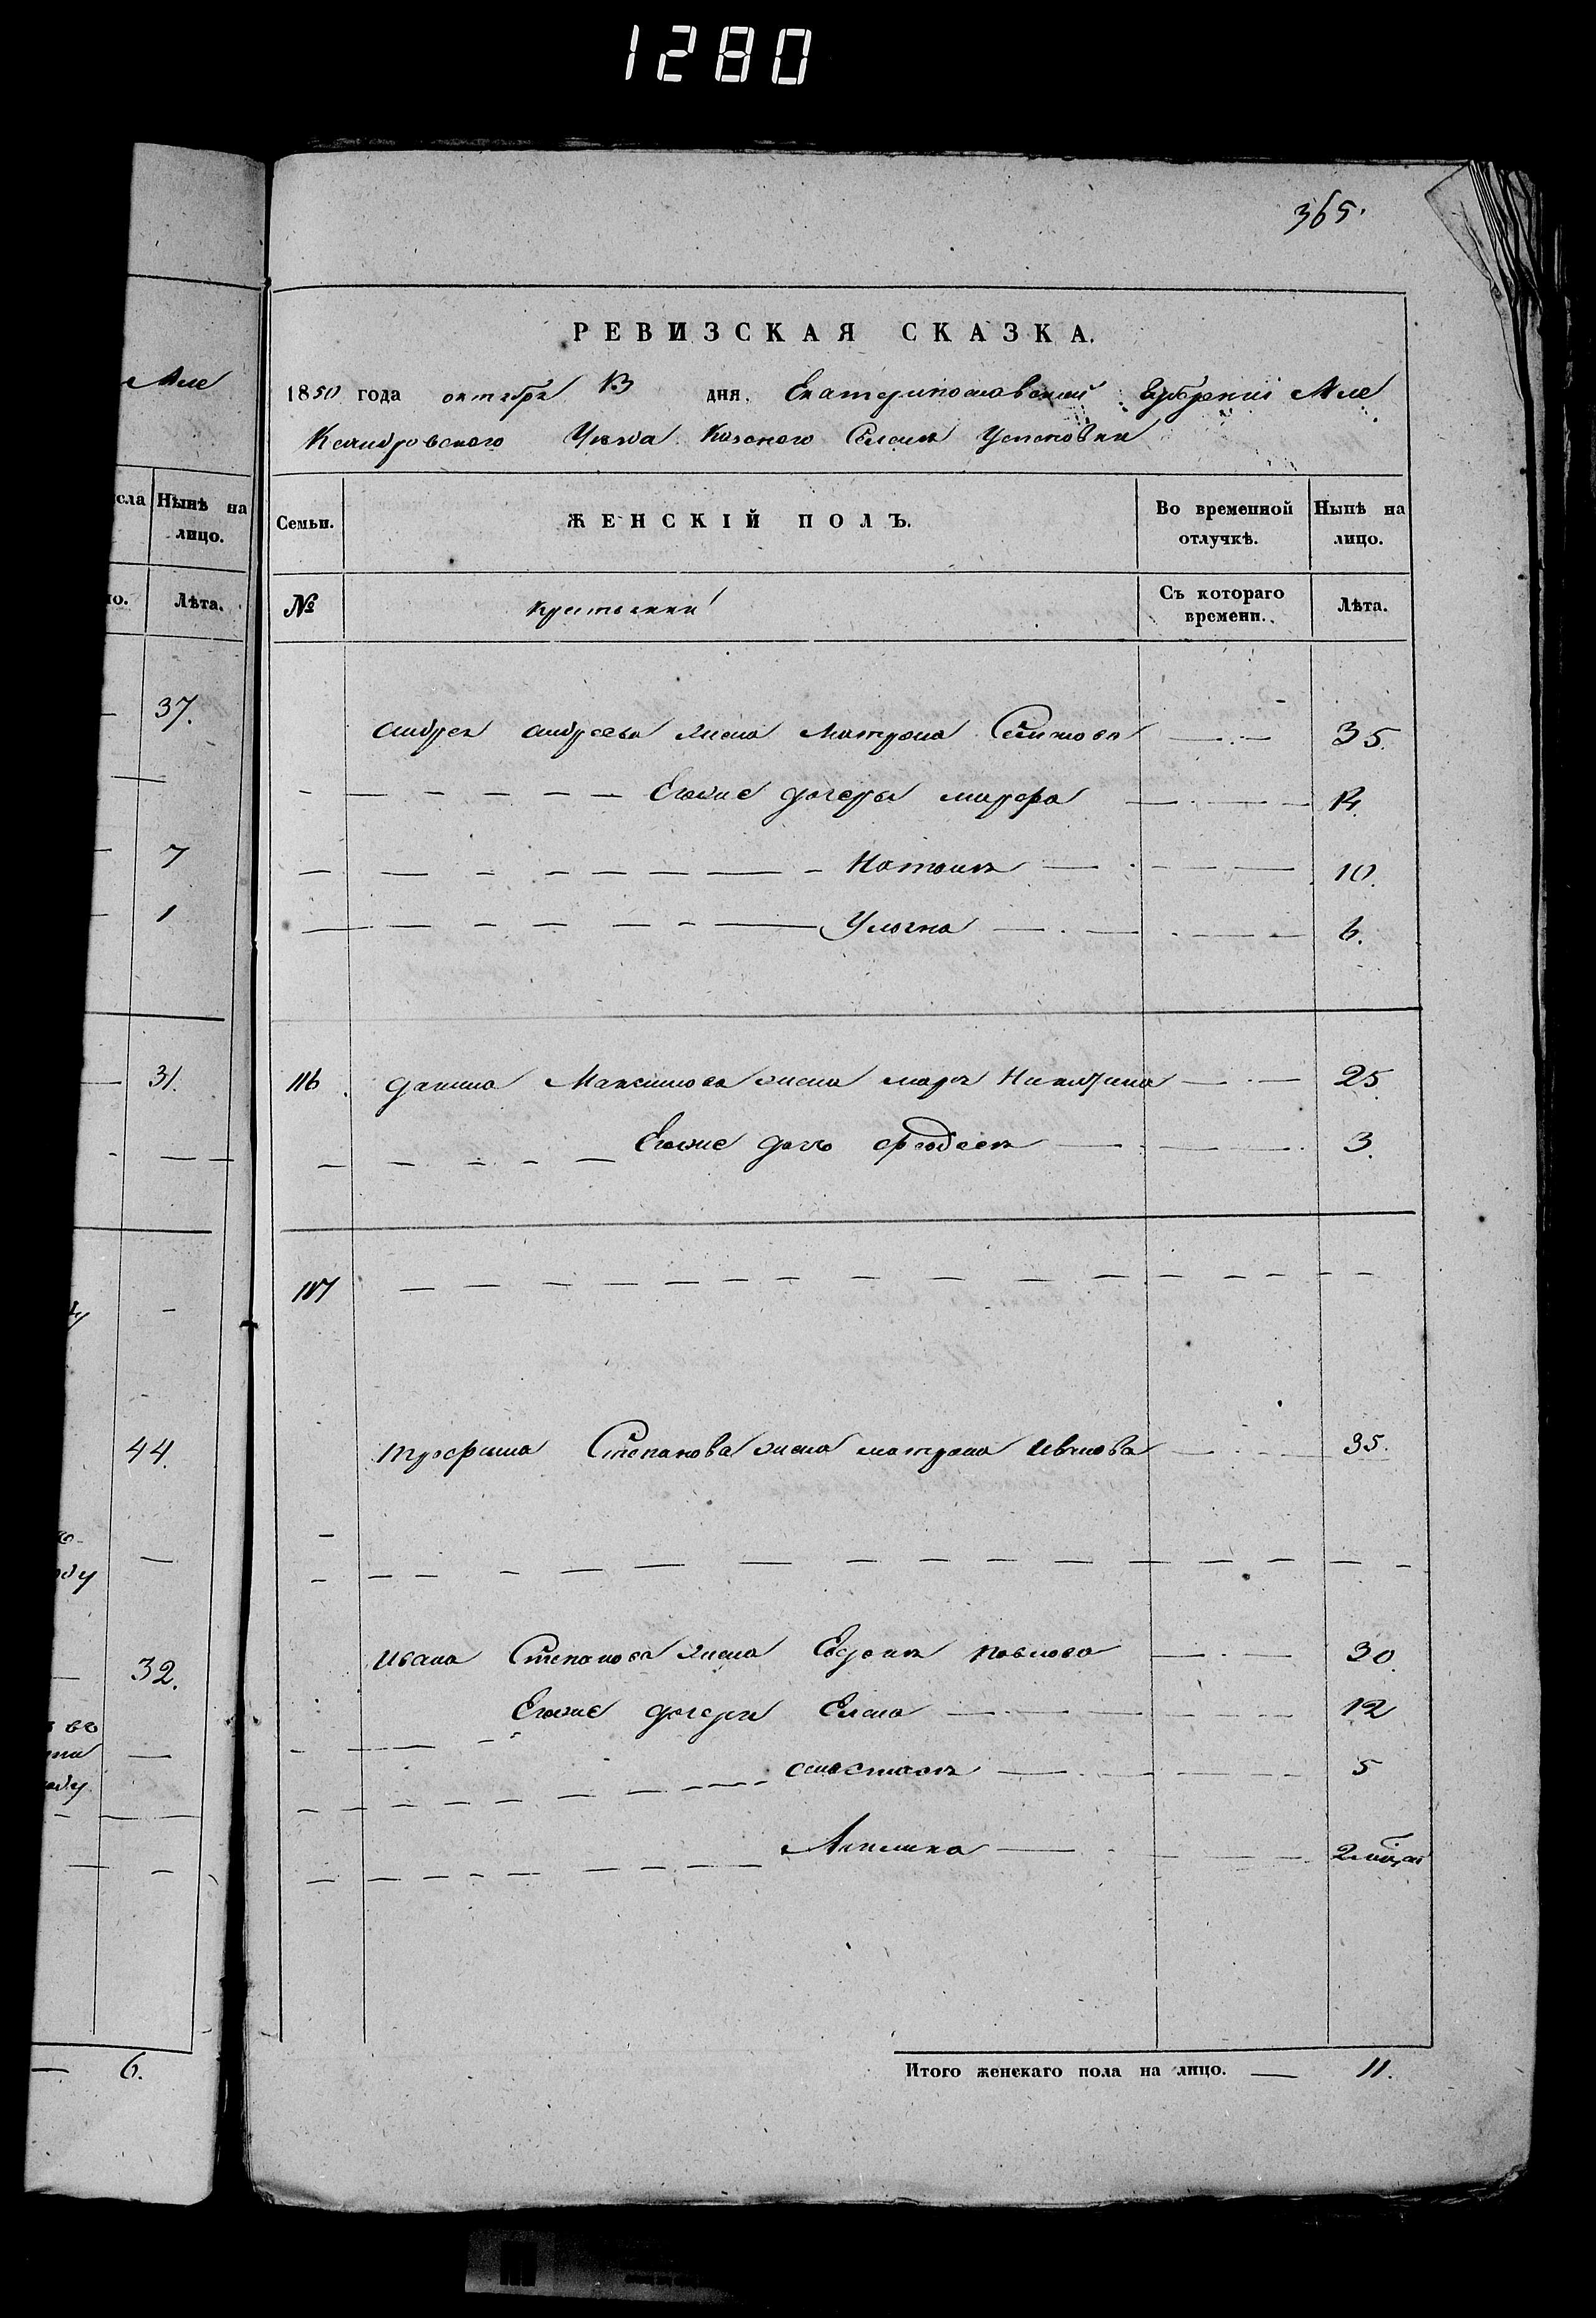 1280
365.
РЕВИЗСКАЯ СКАЗКА.
1850 года октября 13 дня. Екатеринославской Губернии Але
Ксандровского Уезда Казеного Селения Успеновки
Але
сла Нынѣ на лицо.
ло. Лѣта.
37.
7
1
31.
44.
32.
6.
Семьи. ЖЕНСКІЙ ПОЛЪ. Во временной отлучкѣ. Нынѣ на лицо.
№ крестьянки Съ котораго времени. Лѣта.
Андрея Андреева жена Матрона Семенова 35.
Егоже дочеры марфа 14.
Наталя 10.
Улясна 6.
116 Данила Максимова жена марья Никитина 25
Егоже дочь Феодосия 3.
117
трофима Степанова жена матрона Иванова 35.
Ивана Степанова жена Павлова 30.
Егоже дочери Елена 12
анастасия 5
Акилина 2 мѣця
Итого женскаго пола на лицо. 11.